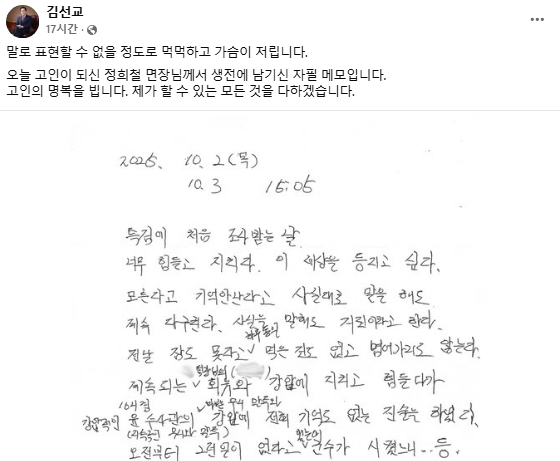 김선교
17시간 ·
말로 표현할 수 없을 정도로 먹먹하고 가슴이 저립니다.
오늘 고인이 되신 정희철 면장님께서 생전에 남기신 자필 메모입니다.
고인의 명복을 빕니다. 제가 할 수 있는 모든 것을 다하겠습니다.
2025. 10. 2 (목)
10. 3 15:05
특검에 처음 조사받는 날
너무 힘들고 지치다. 이 세상을 등지고 싶다.
모른다고 기억안난다고 사실대로 말을 해도
계속 다구친다. 사실을 말해도 거짓이라고 한다.
전날 잠도 못자고 먹은 것도 없고 넘어가지도 않는다.
계속되는 회유와 강압에 지치고 힘들다가
강압에 전혀 기억도 없는 진술을 하였다.
오전부터 그런일이 없다고 수가 시켰느니... 등.